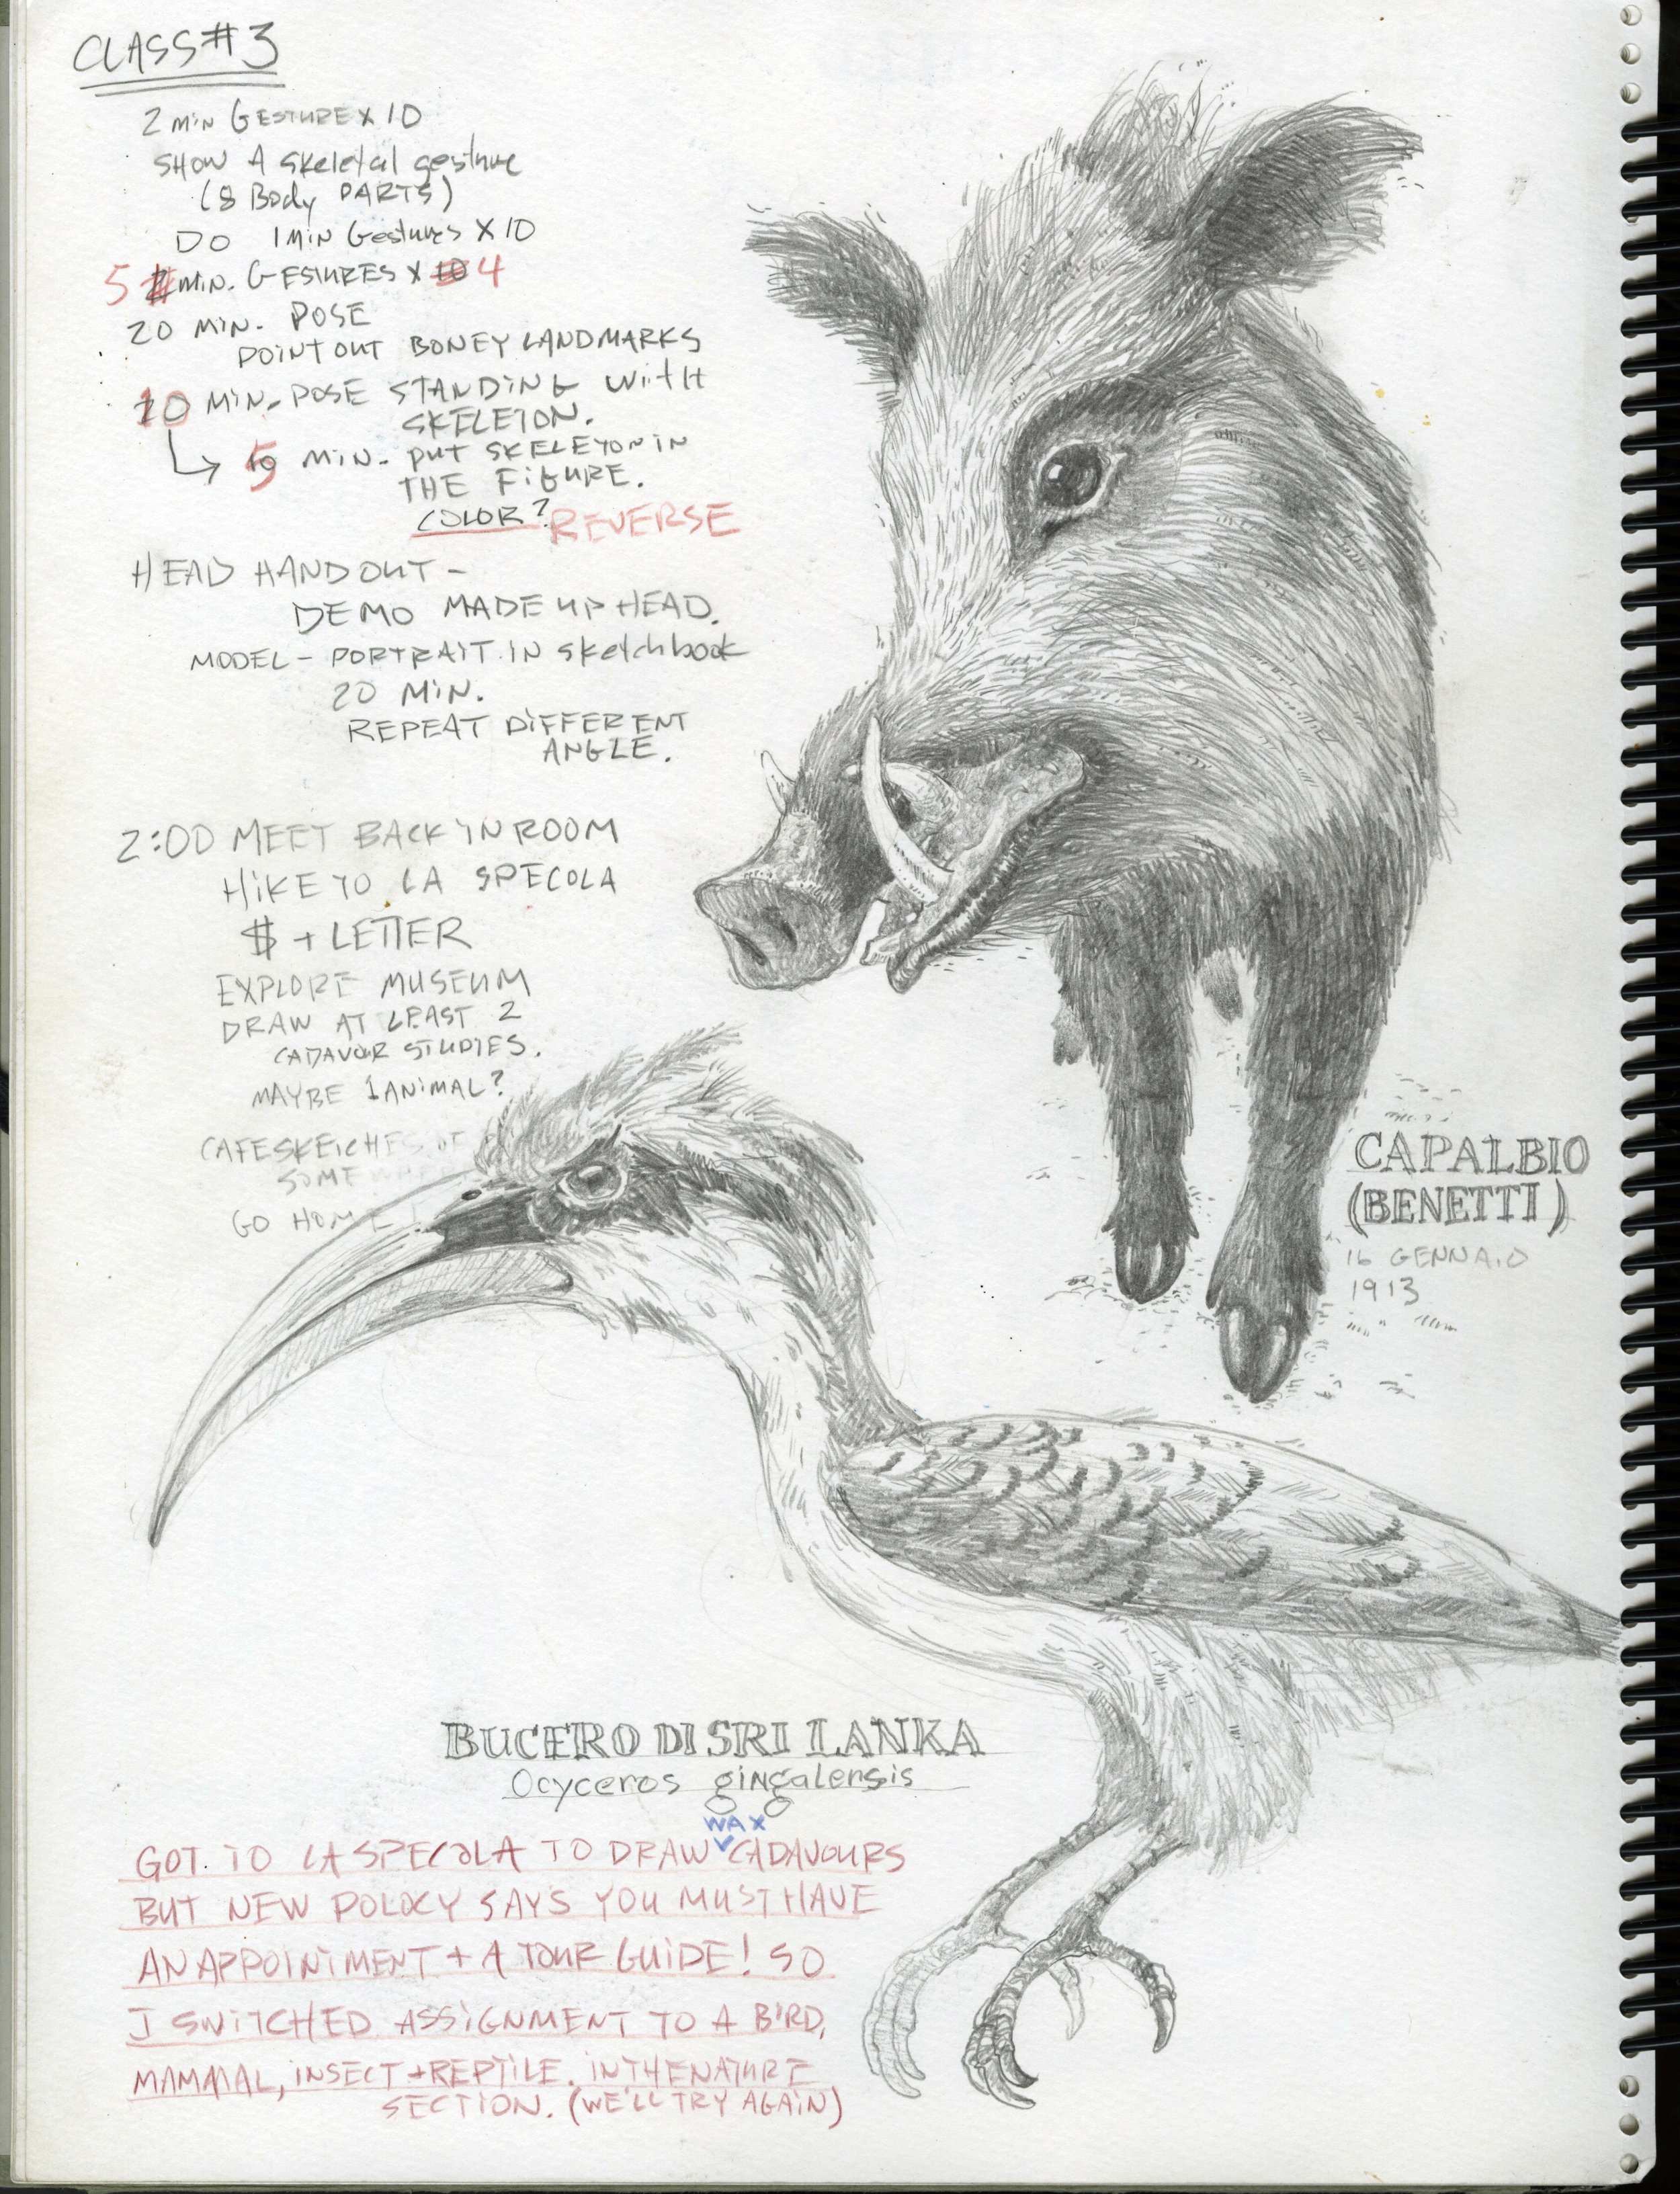 CLASS #3
2 MIN GESTURE X 10
SHOW A skeletal gesture
(8 Body PARTS)
DO 1 MIN Gestures X 10
5 MIN. GESTURES X 4
20 MIN. POSE
POINT OUT BONEY LANDMARKS
10 MIN. POSE STANDING WITH
SKELETON.
5 MIN. PUT SKELETON IN
THE FIGURE.
COLOR? REVERSE
HEAD HANDOUT -
DEMO MADE UP HEAD.
MODEL - PORTRAIT IN sketchbook
20 MIN.
REPEAT DIFFERENT
ANGLE.
2:00 MEET BACK IN ROOM
HIKE TO LA SPECOLA
$ + LETTER
EXPLORE MUSEUM
DRAW AT LEAST 2
CADAVOR STUDIES.
MAYBE 1 ANIMAL?
CAFE SKETCHES OF
SOMEWHERE
GO HOME
CAPALBIO
(BENETTI)
16 GENNAIO
1913
BUCERO DI SRI LANKA
Ocyceros gingalensis
WAX
GOT TO LA SPECOLA TO DRAW CADAVOURS
BUT NEW POLOCY SAYS YOU MUST HAVE
AN APPOINTMENT + A TOUR GUIDE! SO
I SWITCHED ASSIGNMENT TO A BIRD,
MAMMAL, INSECT + REPTILE. IN THE NATURE
SECTION. (WE'LL TRY AGAIN)